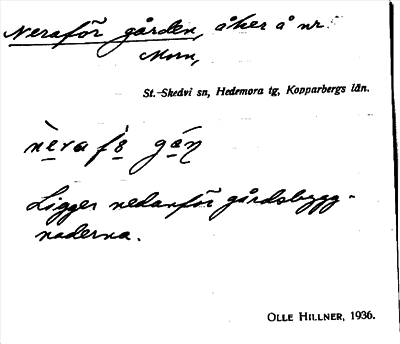 Neraför gården, åker å nr
Morn,
St.-Skedvi sn, Hedemora tg, Kopparbergs län.
nèra fò̱ gá̱ṇ
Ligger nedanför gårdsbygg-
naderna.
OLLE HILLNER, 1936.